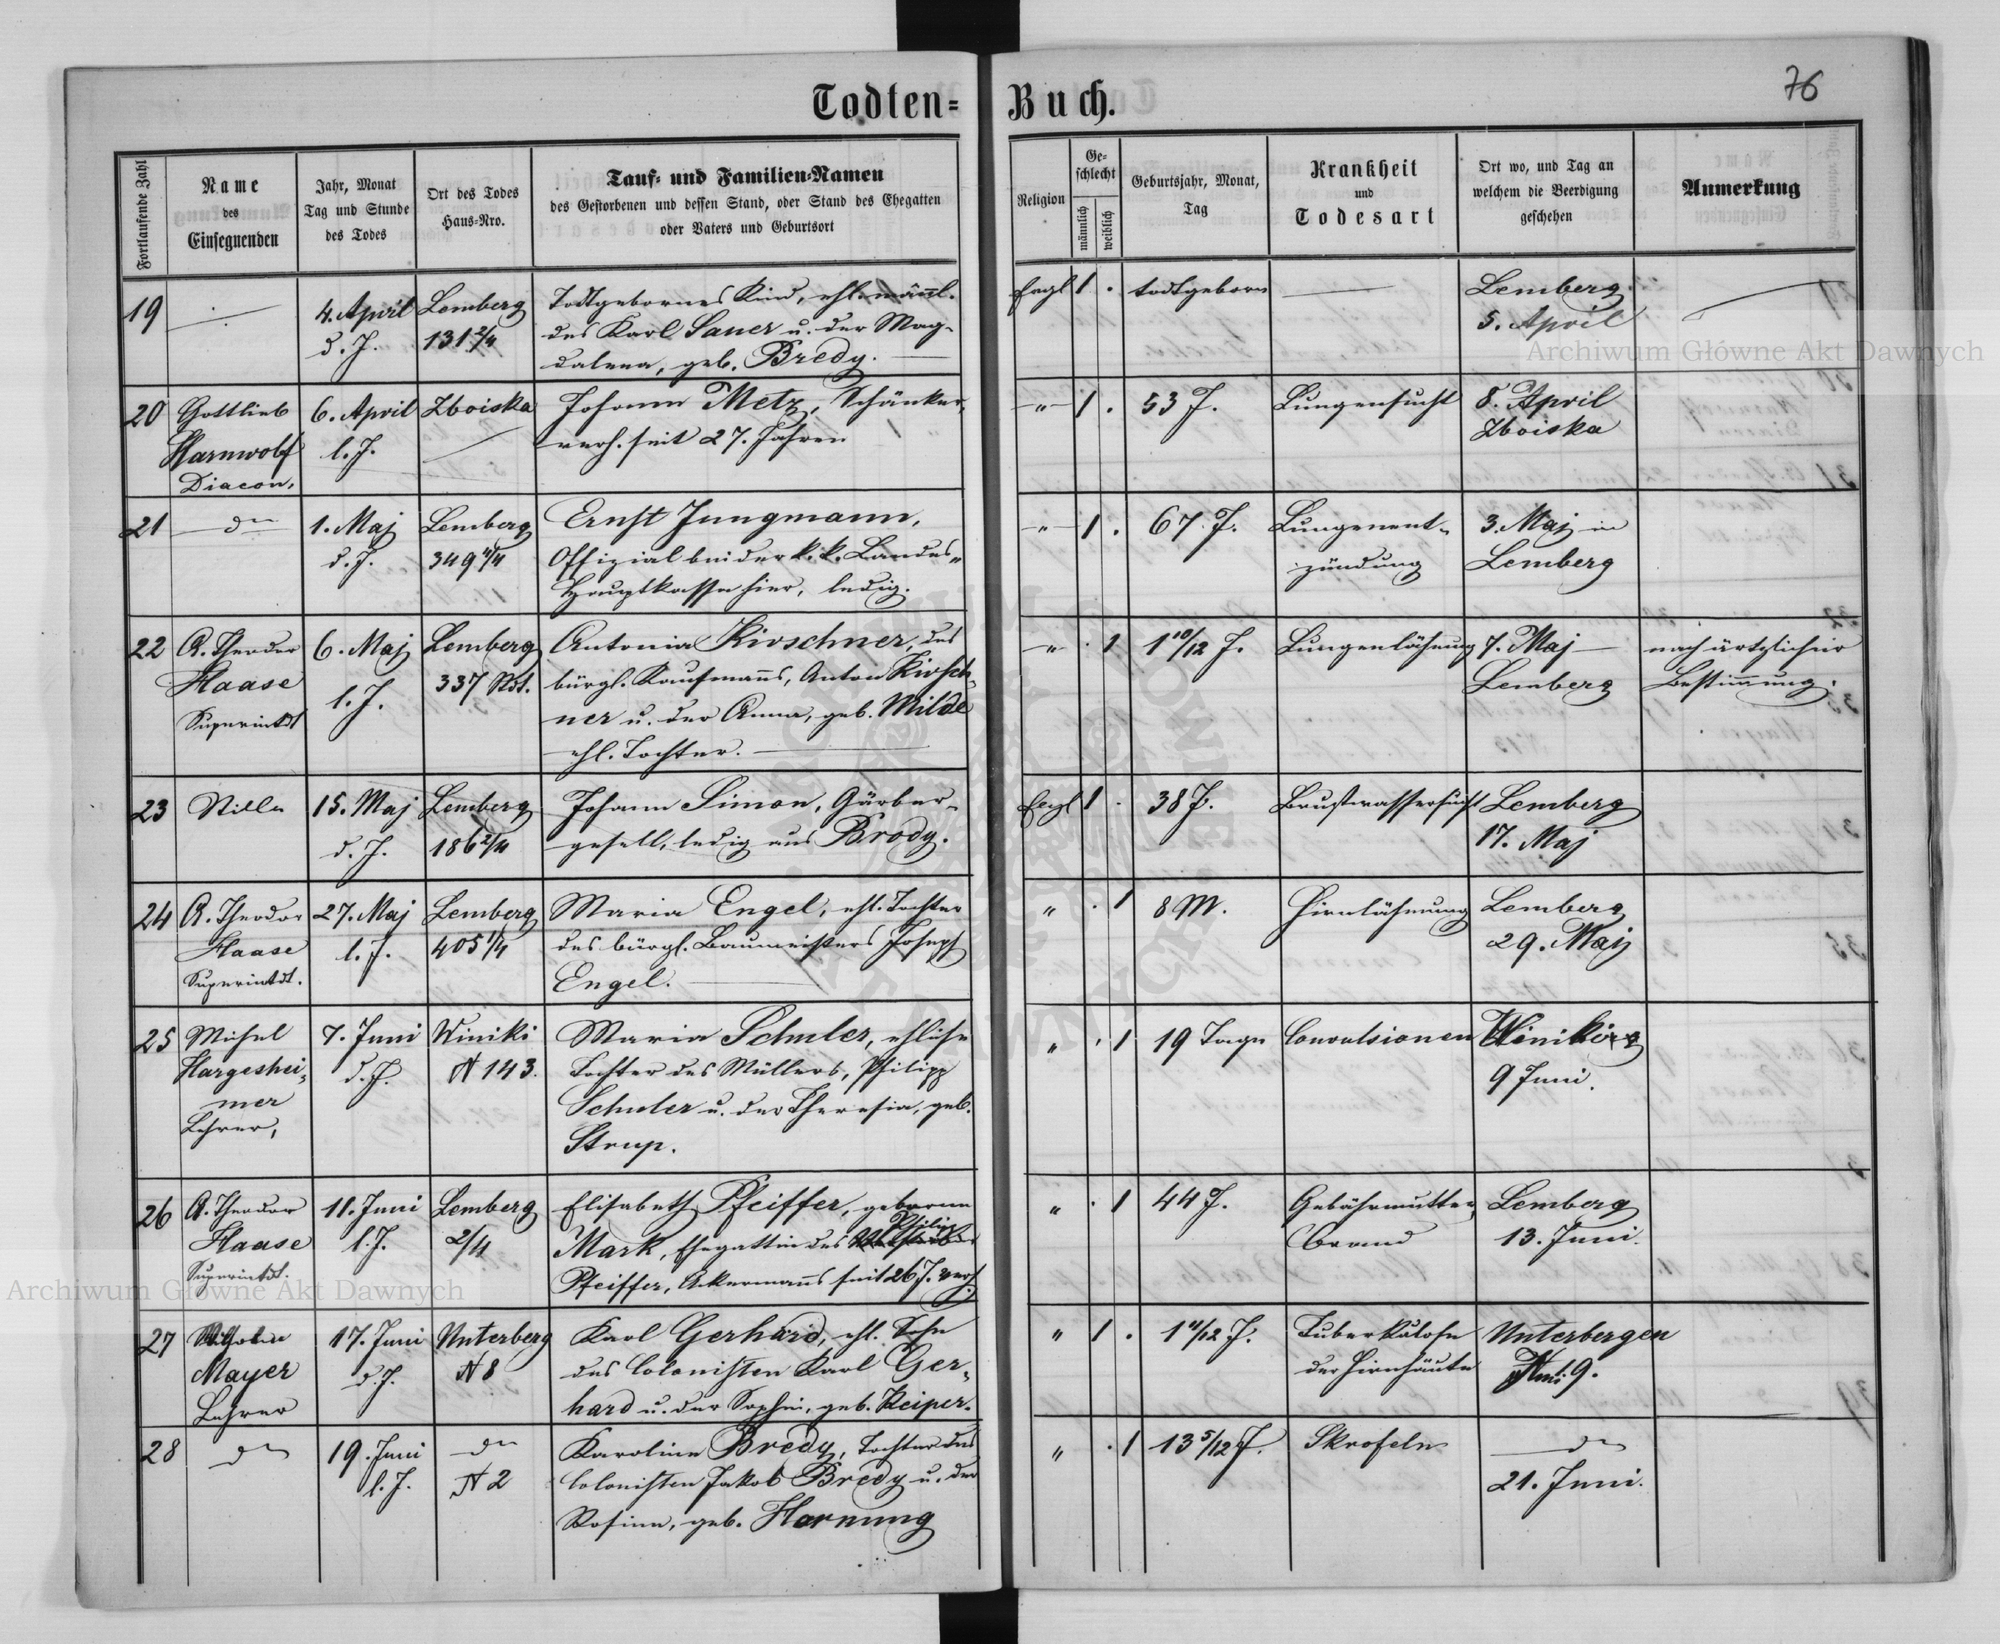 76
Todten=Buch.
Fortlaufende Zahl
Name
des
Einsegnenden
Jahr, Monat
Tag und Stunde
des Todes
Ort des Todes
Haus=Nro.
Tauf= und Familien=Namen
des Gestorbenen und dessen Stand, oder Stand des Ehegatten
oder Vaters und Geburtsort
Religion
Ge=
schlecht
männlich
weiblich
Geburtsjahr, Monat,
Tag
Krankheit
und
Todesart
Ort wo, und Tag an
welchem die Beerdigung
geschehen
Anmerkung
19
4. April
d. J.
Lemberg
131 2/4
Todtgebornes Kind, ehl. männl.
des Karl Sauer u. der Mag-
dalena, geb. Bredy.
Evgl 1 .
todtgeboren
Lemberg
5. April
20
Gottlieb
Harnwolf
Diacon.
6. April
l. J.
Zboiska
Johann Metz, Schänker,
verh. seit 27. Jahren
-"- 1 .
53 J.
Lungensucht
8. April
Zboiska
21
dto
1. Maj
d. J.
Lemberg
349 4/4
Ernst Jungmann,
Offizial bei der k. k. Landes-
Hauptkasse hier, ledig.
-"- 1 .
67. J.
Lungenent-
zündung
3. Maj in
Lemberg
22
A. Theodor
Haase
Superintdt
6. Maj
l. J.
Lemberg
337 Stdt.
Antonia Kirschner, des
bürgl. Kaufmanns, Anton Kirsch-
ner u. der Anna, geb. Milde
ehl. Tochter.
-"- . 1
1 10/12 J.
Lungenlähmung
7. Maj
Lemberg
nach ärtzlicher
Bestimmung.
23
Stille
15. Maj
d. J.
Lemberg
186 2/4
Johann Simon, Gärber-
gesell, ledig aus Brody.
Evgl 1 .
38 J.
Brustwassersucht
Lemberg
17. Maj
24
A. Theodor
Haase
Superintdt.
27. Maj
l. J.
Lemberg
405 1/4
Maria Engel, ehl. Tochter
des bürgl. Baumeisters Joseph
Engel.
" . 1
8 M.
Hirnlähmung
Lemberg
29. Maj
25
Michel
Hargeshei-
mer
Lehrer,
7. Juni
d. J.
Winiki
N 143.
Maria Schuler, ehliche
Tochter des Müllers, Philipp
Schuler u. der Theresia, geb.
Strup.
" . 1
19 Tage
Convulsionen
Winiki
9 Juni.
26
A. Theodor
Haase
Superintdt.
11. Juni
l. J.
Lemberg
2/4
Elisabeth Pfeiffer, geborne
Mark, Ehegattin des Philipp
Pfeiffer, Ackermanns seit 26 J. verh.
" . 1
44 J.
Gebährmutter
brand
Lemberg
13. Juni.
27
Mayer
Lehrer
17. Juni
d. J.
Unterberg
N 8
Karl Gerhard, ehl. Sohn
des Colonisten Karl Ger-
hard u. der Sophie, geb. Reiper.
" 1 .
1 11/12 J.
Tuberkulose
der Hirnhäute
Unterbergen
9.
28
dto
19. Juni
l. J.
dto
N 2
Karoline Bredy, Tochter des
Colonisten Jakob Bredy u. der
Rosina, geb. Hornung
" . 1
13 5/12 J.
Skrofeln
dto
21. Juni.
Archiwum Główne Akt Dawnych
Archiwum Główne Akt Dawnych